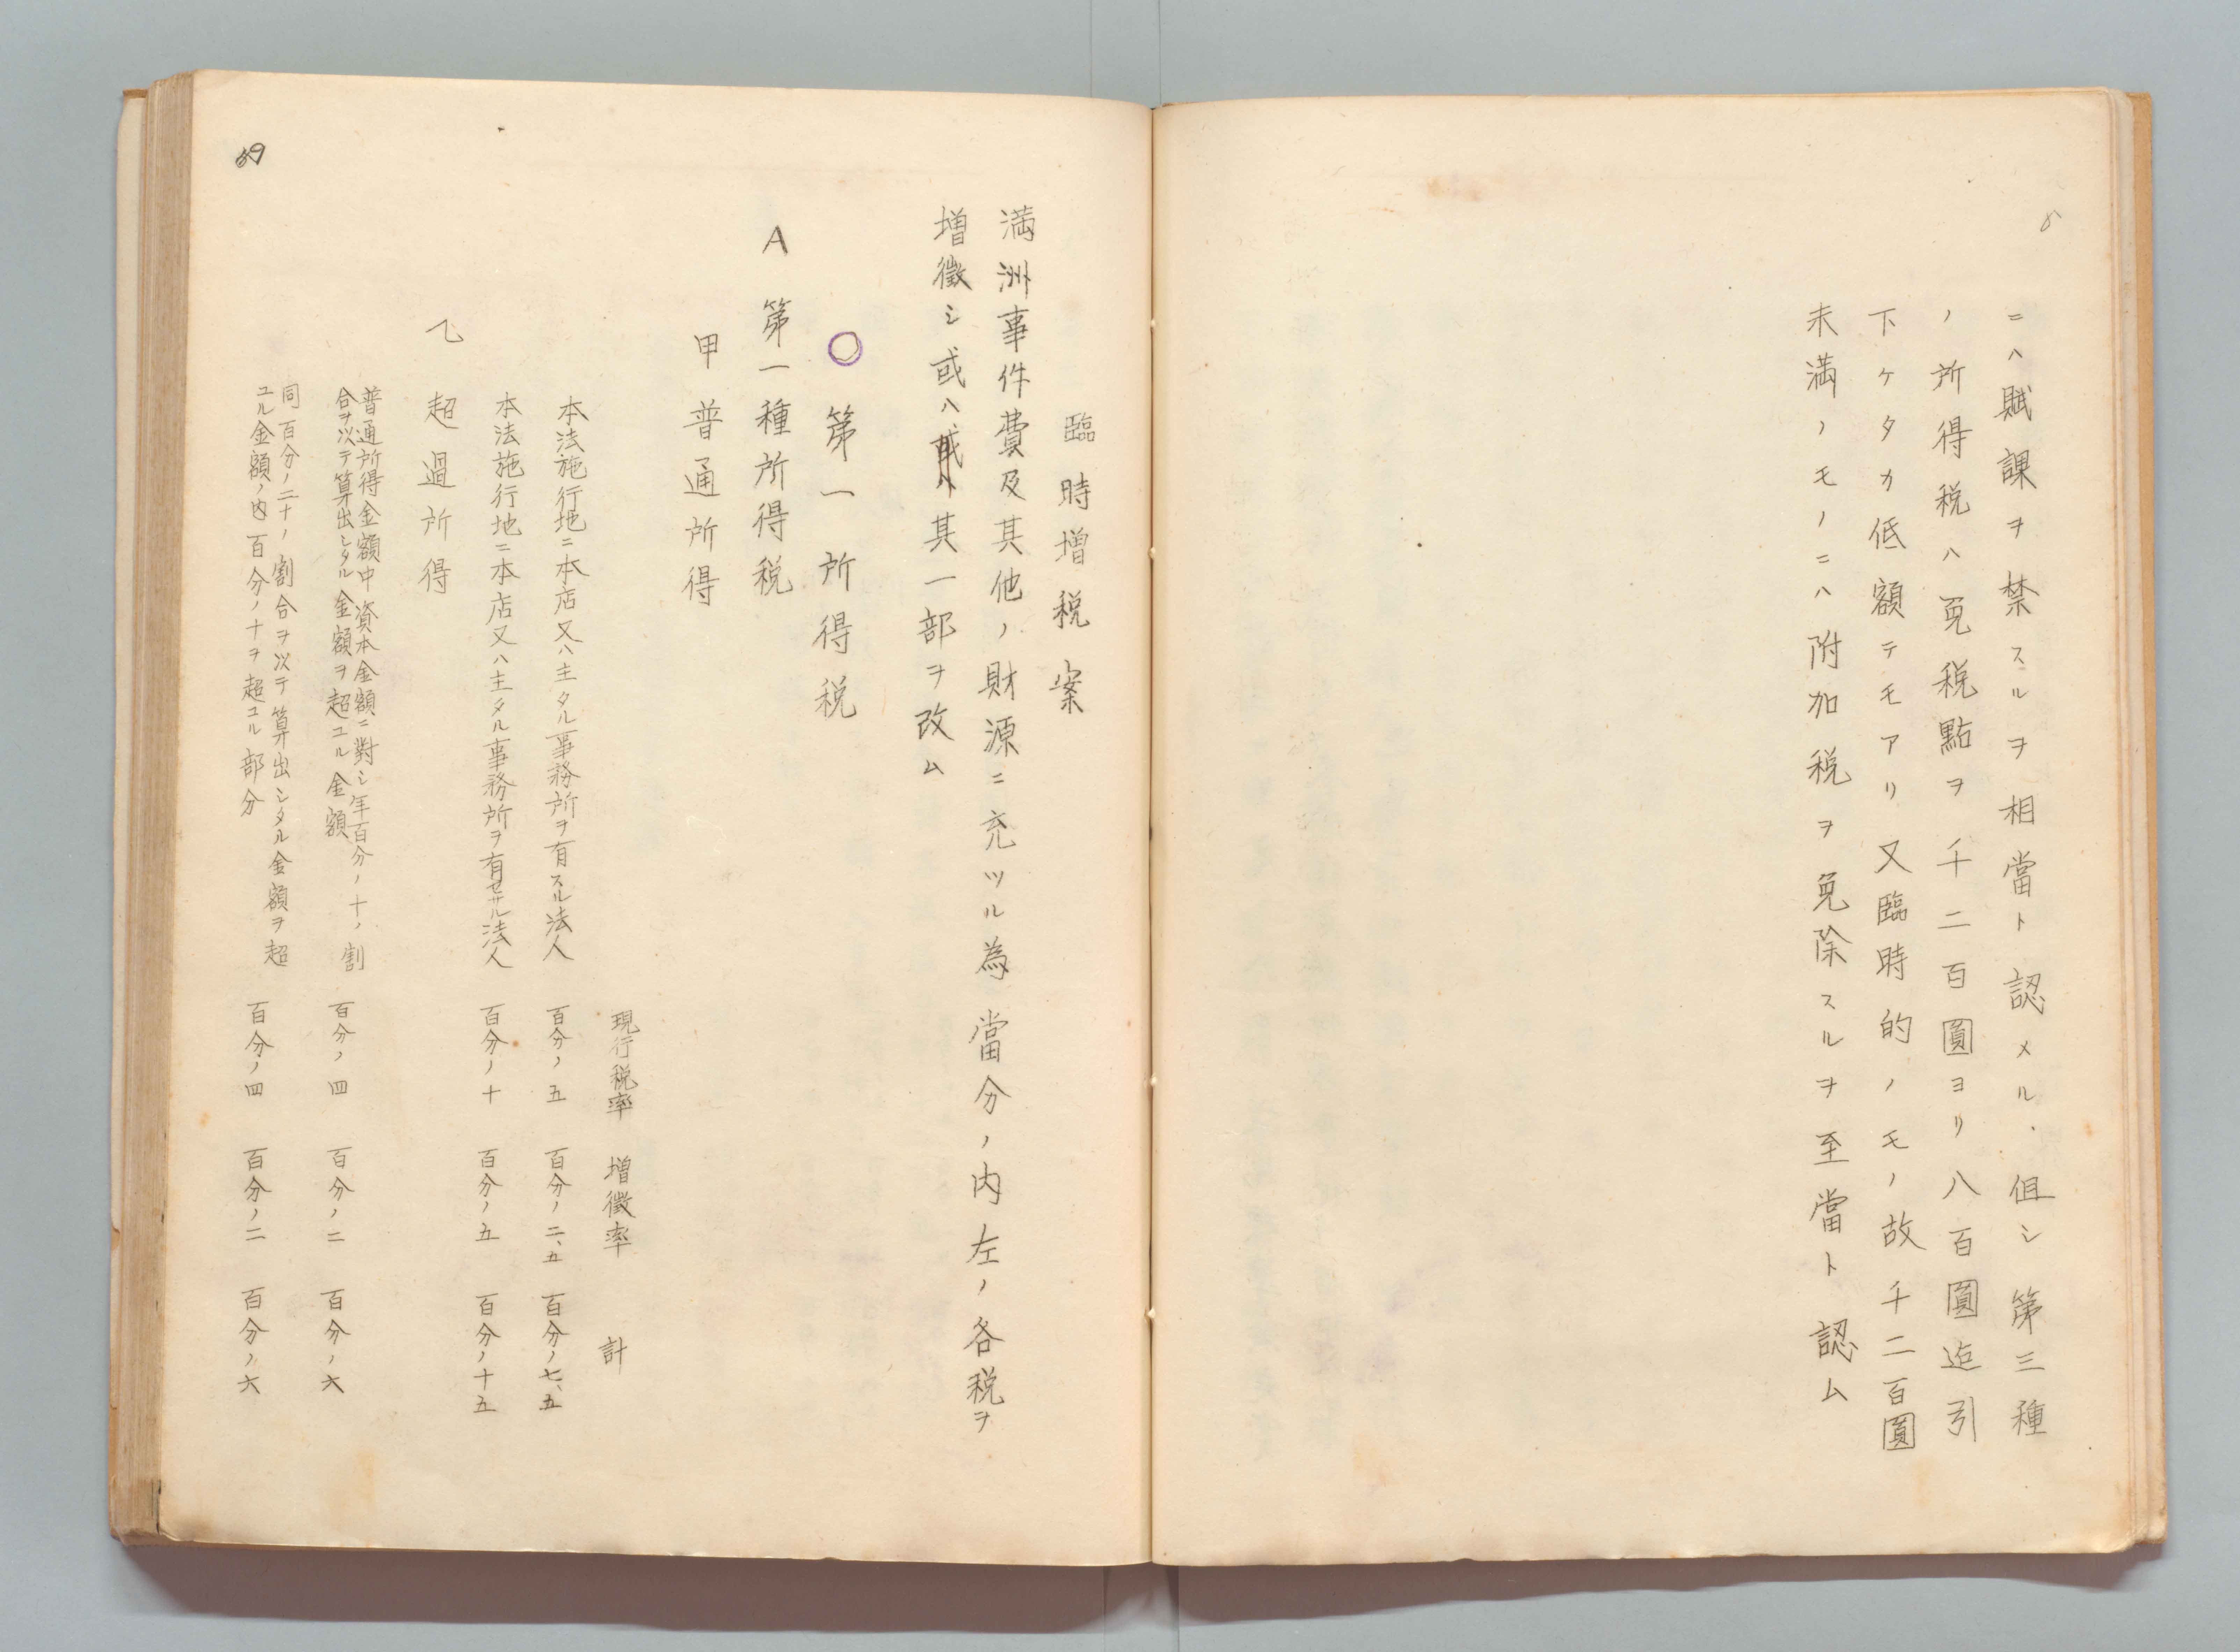 ニハ賦課ヲ禁スルヲ相當ト認メル.但シ第三種
ノ所得税ハ免税點ヲ千二百圓ヨリ八百圓迄引
下ケタカ低額テモアリ又臨時的ノモノ故千二百圓
未満ノモノニハ附加税ヲ免除スルヲ至當ト認ム
臨時増税案
満洲事件費及其他ノ財源ニ充ツル為當分ノ内左ノ各税ヲ
増徴シ或ハ其一部ヲ改ム
○第一 所得税
A 第一種所得税
甲 普通所得
現行税率 増徴率 計
本法施行地ニ本店又ハ主タル事務所ヲ有スル法人 百分ノ五 百分ノ二、五 百分ノ七、五
本法施行地ニ本店又ハ主タル事務所ヲ有セサル法人 百分ノ十 百分ノ五 百分ノ十五
乙 超過所得
普通所得金額中資本金額ニ對シ年百分ノ十ノ割
合ヲ以テ算出シタル金額ヲ超ユル金額 百分ノ四 百分ノ二 百分ノ六
同 百分ノ二十ノ割合ヲ以テ算出シタル金額ヲ超
ユル金額ノ内百分ノ十ヲ超ユル部分 百分ノ四 百分ノ二 百分ノ六
69